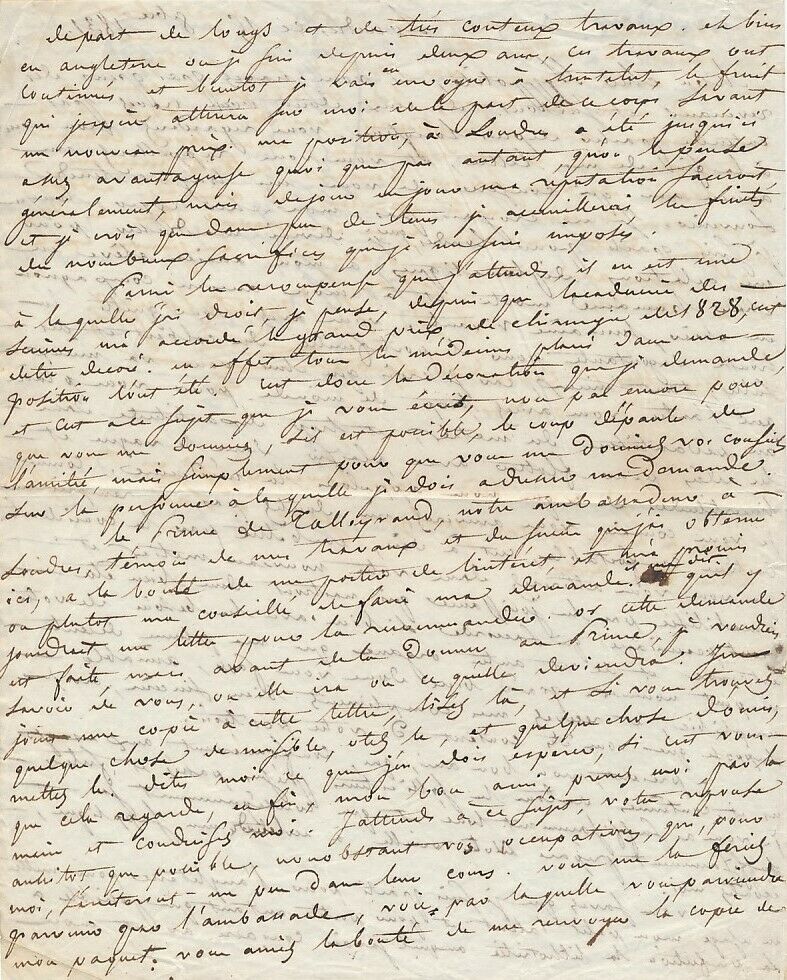 depart de longs et de très couteux travaux. et bien
en angleterre ou je suis depuis deux ans, ces travaux ont
continués et bientot je vais en envoyer à linstitut, le fruit
qui jespère attirera sur moi de la part de ce corps savant
un nouveau prix. ma position, à Londres a été jusqu'ici
assez avantageuse quoi que pas autant qu'on le pense
généralement, mais de jour en jour ma réputation s'accroit
et je crois que dans peu de tems je accueillerai les fruits
des nombreux sacrifices que je me suis imposés.
Parmi les recompense que j'attends, il en est une
à la quelle j'ai droit, je pense, depuis que lacadémie des
sciences m'a accordé le grand prix de chirurgie de 1828, cest
detre decoré. en effet tous les médecins placé dans ma
position l'ont été. cest donc la décoration que je demande,
et cest a ce sujet que je vous écris, non pas encore pour
que vous me donniez, sil est possible, le coup dépaule de
l'amitié, mais simplement pour que vous me donniez vos conseils
sur la personne à la quelle je dois adresser ma demande
le Prince de Talleyrand, notre ambassadeur à
Londres, témoin de mes travaux et du succès que j'ai obtenu
ici, a la bonté de me porter de lintéret, et m'a promis
ou plutot ma conseillé de faire ma demande, il me dit qu'il y
joindrait une lettre pour la recommander. or cette demande
est faite, mais avant de la donner au Prince, je voudrais
savoir de vous, ou elle ira ou ce qu'elle deviendra. Jen
joins une copie à cette lettre, lisez la, et si vous trouvez
quelque chose de nuisible, otez le, et quelque chose domis,
mettez le. dites moi ce que jen dois esperer, si cest vous
que cela regarde, enfin, mon bon ami, prenez moi par la
main et conduisez moi. Jattends à ce sujet, votre reponse
aussitot que possible, nonobstant vos occupations, que, pour
moi, un peu dans leur cours. vous me la feriez
parvenir par l'ambassade, voie par la quelle vous parviendra
mon paquet. vous auriez la bonté de me renvoyer la copie de